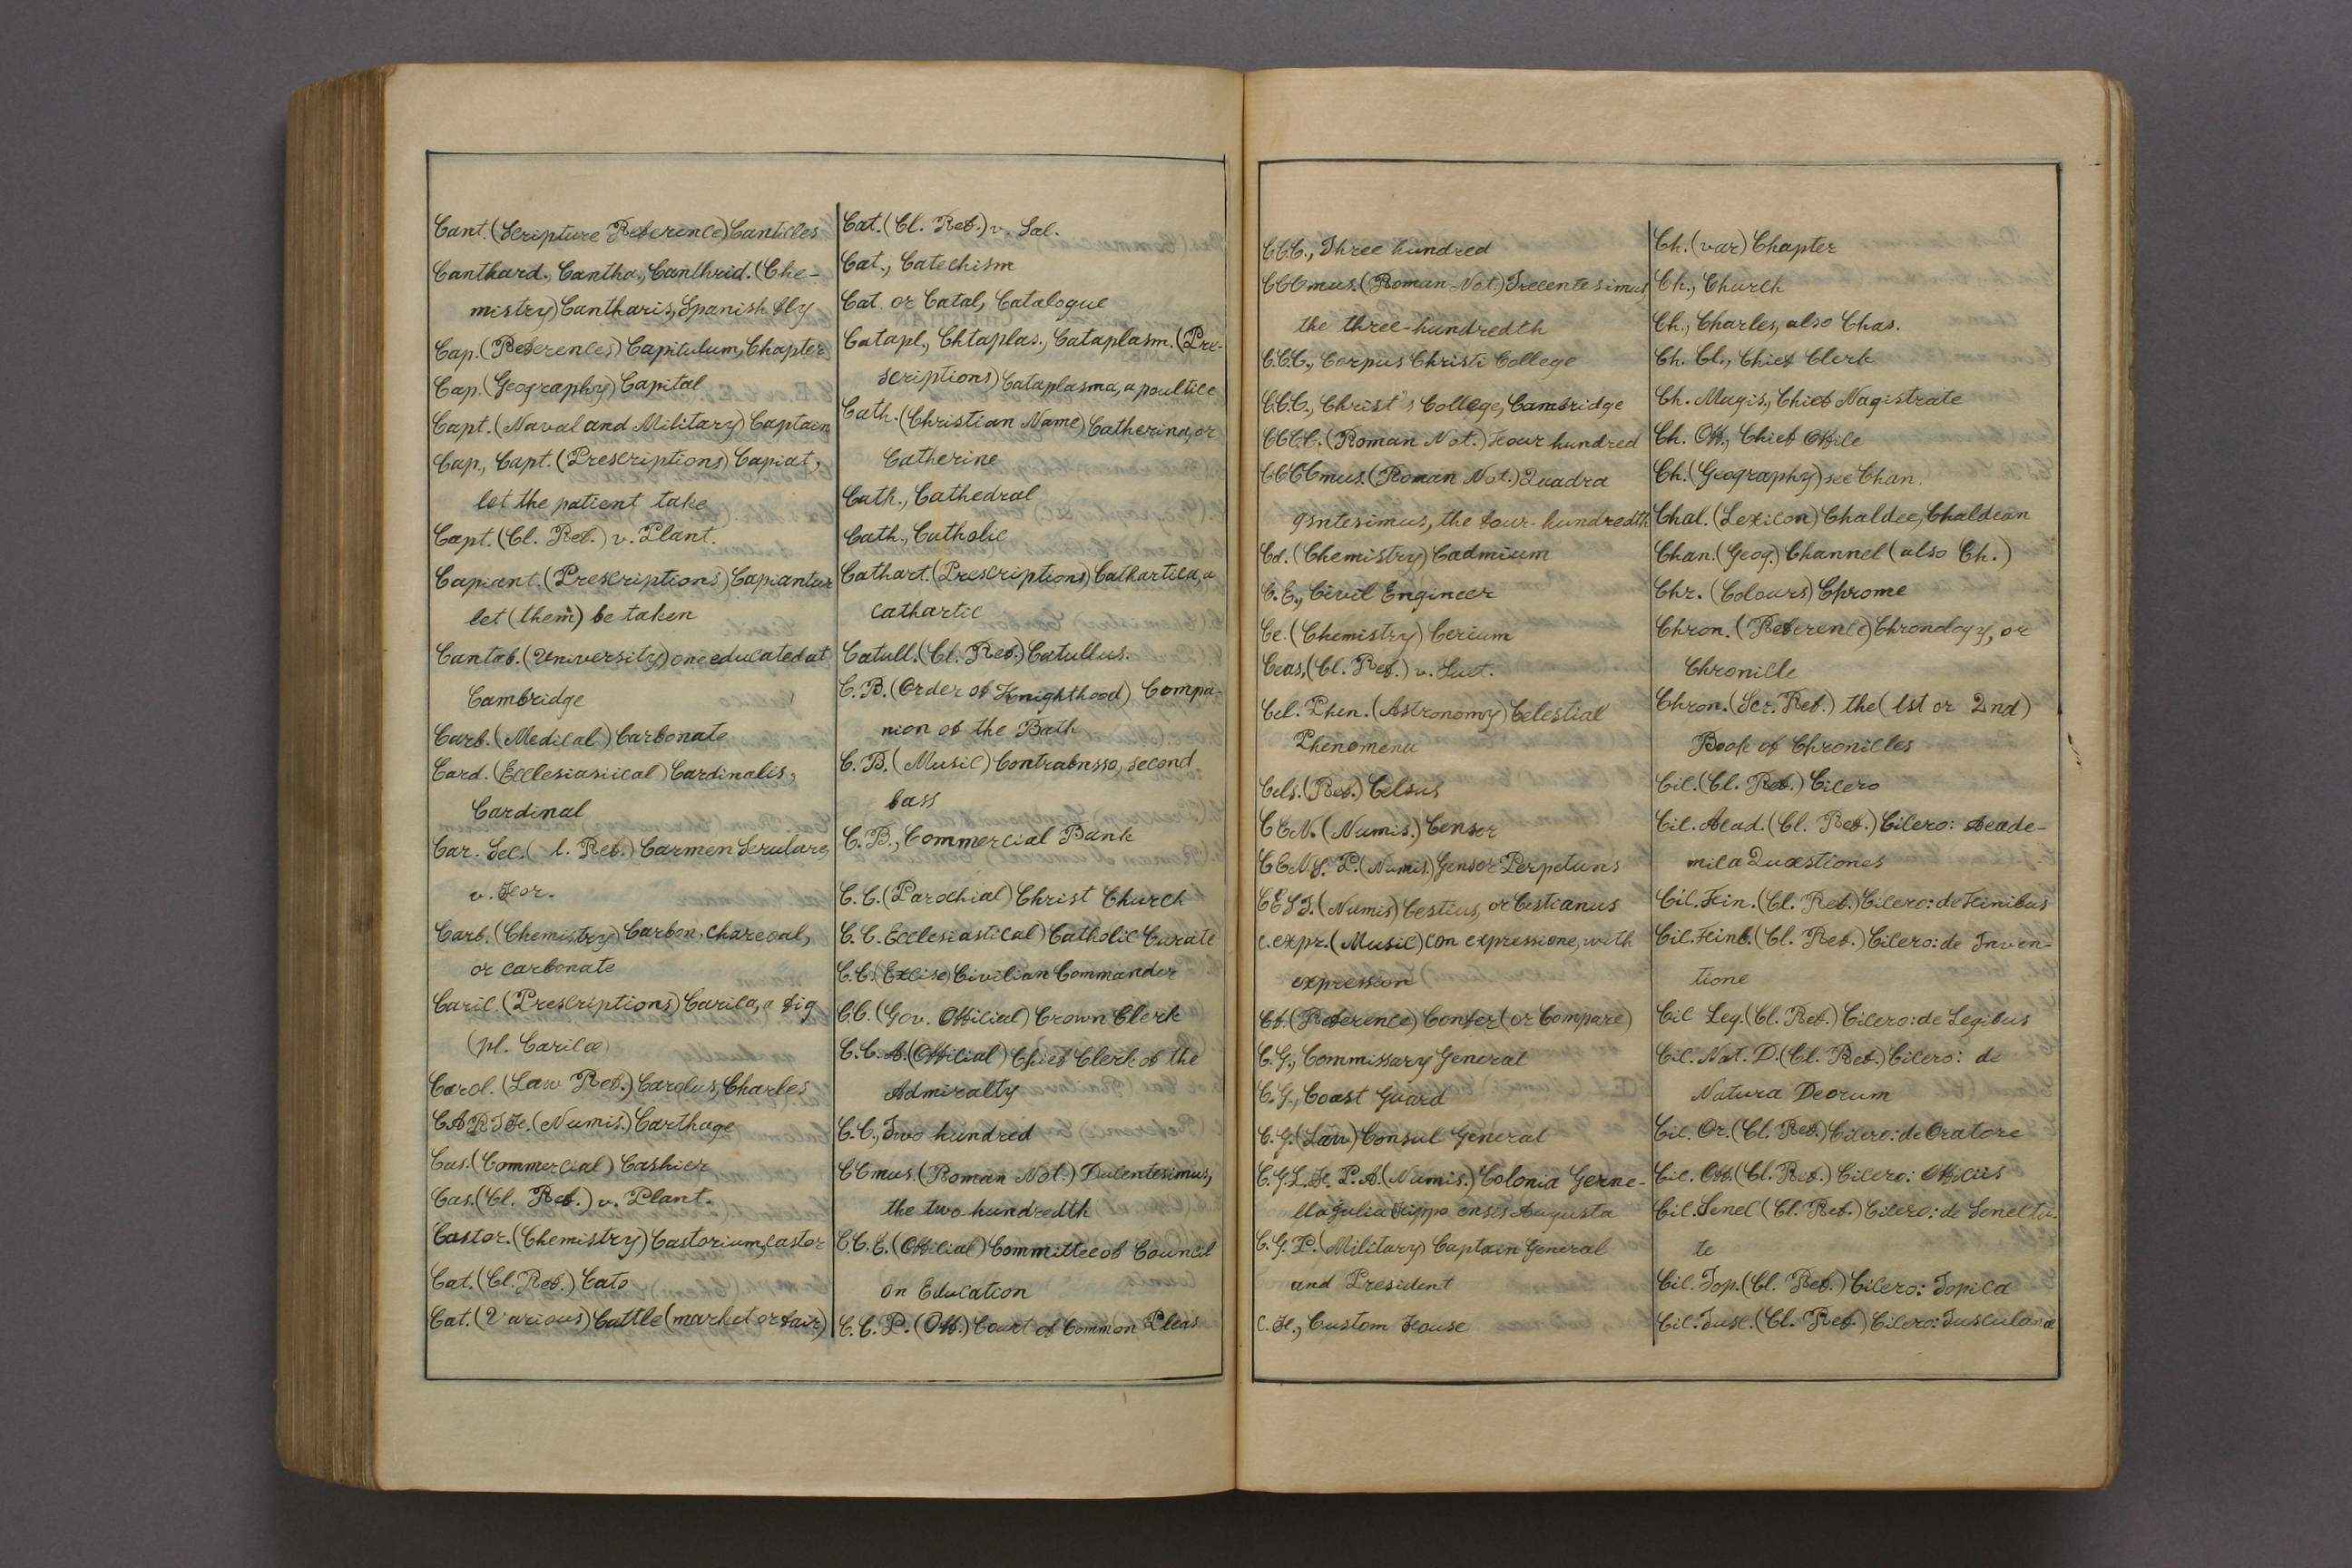 Cant. (Scripture Reference) Canticles
Canthard., Cantha., Canthrid. (Che-
mistry) Cantharis, Spanish fly
Cap. (References) Capitulum, Chapter
Cap. (Geography) Capital
Capt. (Naval and Military) Captain
Cap., Capt. (Prescriptions) Capiat,
let the patient take
Capt. (Cl. Ref.) v. Plant.
Capiant. (Prescriptions) Capiantur
let (them) be taken
Cantab. (University) one educated at
Cambridge
Carb. (Medical) Carbonate
Card. (Ecclesiasiical) Cardinalis,
Cardinal
Car. Sec. ( l. Ref.) Carmen Seculare,
v. Hor.
Carb. (Chemistry) Carbon, chareoal,
or carbonate
Caric. (Prescriptions) Carica, a fig
(pl. Caricæ)
Carol. (Law Ref.) Carolus, Charles
CARTH. (Numis.) Carthage
Cas. (Commercial) Cashier
Cas. (Cl. Ref.) v. Plant.
Castor. (Chemistry) Castorium, castor
Cat. (Cl. Ref.) Cato
Cat. (Various) Cattle (market or fair)
Cat. (Cl. Ref.) v. Sal.
Cat., Catechism
Cat. or Catal, Catalogue
Catapl., Chtaplas., Cataplasm. (Pre-
scriptions) Cataplasma, a poultice
Cath. (Christian Name) Catherina, or
Catherine
Cath., Cathedral
Cath., Catholic
Cathart. (Prescriptions) Cathartica, a
cathartic
Catull. (Cl. Ref.) Catullus.
C. B. (Order of Knighthood) Compa-
nion of the Bath
C. B. (Music) Contrabnsso, second
bass
C. B., Commercial Bank
C. C. (Parochial) Christ Church
C. C. Ecclesiastical) Catholic Curate
C.C. (Excise) Civilian Commander
C.C. (Gov. Official) Crown Clerk
C.C. A. (Official) Chief Clerk of the
Admiralty
C.C., Two hundred
CCmus. (Roman Not.) Ducentesimus,
the two hundredth
C.C.C. (Official) Committee of Council
on Education
C. C. P. (Off.) Court of Common Pleas
CCC., Three hundred
CCCmus. (Roman Not.) Trecentesimus
the three-hundredth
C.C.C., Corpus Christi College
C.C.C., Christ's College, Cambridge
CCCC. (Roman Not.) Four hundred
CCCCmus. (Roman Not.) Quadra
gsntesimus, the four-hundredth
Cd. (Chemistry) Cadmium
C. E., Civil Engineer
Ce. (Chemistry) Cerium
Ceas, (Cl. Ref.) v. Suet.
Cel. Phen. (Astronomy) Celestial
Phenomena
Cels. (Ref.) Celsus
CEN. (Numis.) Censor
CENS. P. (Numis.) Gensor Perpetuns
CEST. (Numis) Cestius, or Cestianus
c. expr. (Music) con expressione, with
expression
Cf. (Reference) Confer (or Compare)
C.G., Commissary General
C.G., Coast Guard
C.G. (Law) Consul General
C.G.I.H. P. A. (Numis.) Colonia Gerne-
lla gulia Hippo ensis Augusta
C. G. P. (Military) Captain General
and President
C. H., Custom House
Ch. (var) Chapter
Ch., Church
Ch., Charles, also Chas.
Ch. Cl., Chief Clerk
Ch. Magis., Chief Nagistrate
Ch. Off., Chief Office
Ch. (Geography) see Chan.
Chal. (Lexicon) Chaldee, Chaldean
Chan. (Geog.) Channel (also Ch.)
Chr. (Colours) Chrome
Chron. (Reference) Chronology, or
Chronicle
Chron. (Scr. Ref.) the (1st or 2nd)
Book of Chronicles
Cic. (Cl. Ref.) Cicero
Cic. Acad. (Cl. Ref.) Cicero: Acade-
mica Quæstiones
Cic. Fin. (Cl. Ref.) Cicero: de Finibus
Cic. Finb. (Cl. Ref.) Cicero: de Inven-
tione
Cic Leg. (Cl. Ref.) Cicero: de Legibus
Cic. Nat. D. (Cl. Ref.) Cicero: de
Natura Deorum
Cic. Or. (Cl. Ref.) Cicero: de Oratore
Cic. Off. (Cl. Ref.) Cicero: Officiis
Cic. Senec (Cl. Ref.) Cicero: de Senectu-
te
Cic. Top. (Cl. Ref.) Cicero: Topica
Cic. Tusc. (Cl. Ref.) Cicero: Tusculanæ